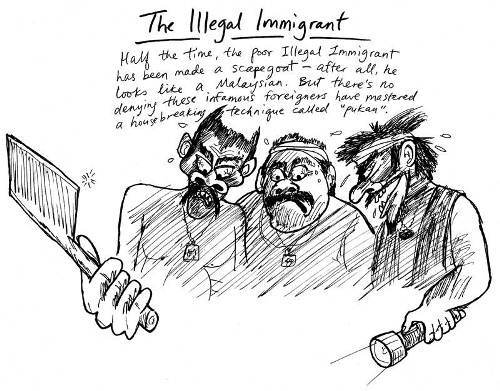 The Illegal Immigrant
Half the time, the poor Illegal Immigrant
has been made a scapegoat – after all, he
looks like a Malaysian. But there's no
denying these infamous foreigners have mastered
a housebreaking technique called "pukau".